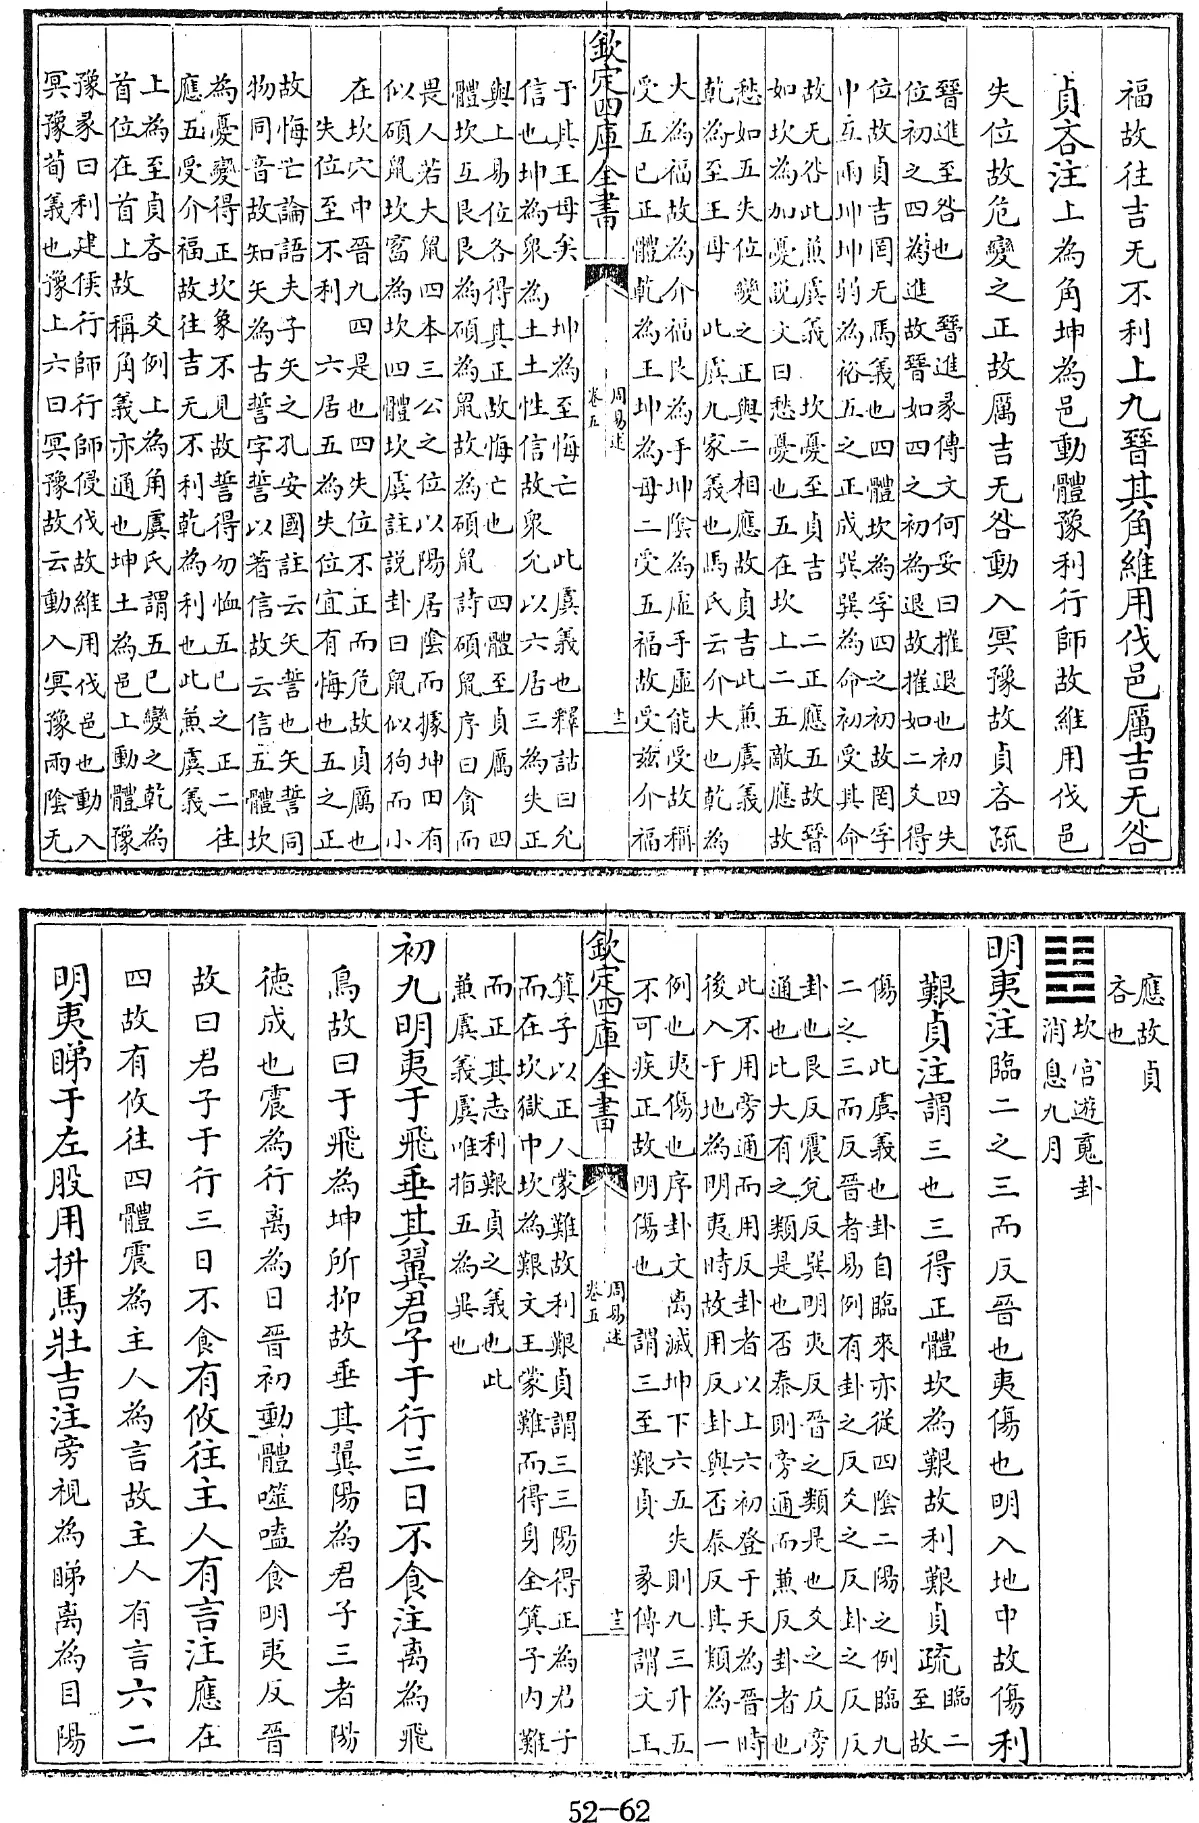 福故往吉无不利上九晉其角維用伐邑厲吉无咎
貞吝注上為角坤為邑動體豫利行師故維用伐邑
失位故危變之正故厲吉无咎動入冥豫故貞吝疏
晉進至咎也　晉進彖傳文何妥曰摧退也初四失
位初之四為進故晉如四之初為退故摧如二爻得
位故貞吉罔无馬義也四體坎為孚四之初故罔孚
中互兩坤坤弱為裕五之正成巽巽為命初受其命
故无咎此兼虞義　坎憂至貞吉　二正應五故晉
如坎為加憂說文曰愁憂也五在坎上二五敵應故
愁如五失位變之正與二相應故貞吉此兼虞義
乾為至王母　此虞九家義也馬氏云介大也乾為
大為福故為介福艮為手坤陰為虛手虛能受故稱
受五已正體乾為王坤為母二受五福故受兹介福
欽定四庫全書
周易述
卷五
十二
于其王母矣　坤為至悔亡　此虞義也釋詁曰允
信也坤為衆為土土性信故衆允以六居三為失正
與上易位各得其正故悔亡也　四體至貞厲　四
體坎互艮艮為碩為鼠故為碩鼠詩碩鼠序曰貪而
畏人若大鼠四本三公之位以陽居陰而據坤田有
似碩鼠坎窞為坎四體坎虞註説卦曰鼠似狗而小
在坎穴中晉九四是也四失位不正而危故貞厲也
失位至不利　六居五為失位宜有悔也五之正
故悔亡論語夫子矢之孔安國註云矢誓也矢誓同
物同音故知矢為古誓字誓以著信故云信五體坎
為憂變得正坎象不見故誓得勿恤五已之正二往
應五受介福故往吉无不利乾為利也此兼虞義
上為至貞吝　爻例上為角虞氏謂五已變之乾為
首位在首上故稱角義亦通也坤土為邑上動體豫
豫彖曰利建侯行師行師侵伐故維用伐邑也動入
冥豫荀義也豫上六曰冥豫故云動入冥豫兩陰无
應故貞
吝也
坎宮遊䰟卦
消息九月
明夷注臨二之三而反晉也夷傷也明入地中故傷利
艱貞注謂三也三得正體坎為艱故利艱貞疏臨二
至故
傷　此虞義也卦自臨來亦從四陰二陽之例臨九
二之三而反晉者易例有卦之反爻之反卦之反反
卦也艮反震兌反巽明夷反晉之類是也爻之反旁
通也比大有之類是也否泰則旁通而兼反卦者也
此不用旁通而用反卦者以上六初登于天為晉時
後入于地為明夷時故用反卦與否泰反其類為一
例也夷傷也序卦文离滅坤下六五失則九三升五
不可疾正故明傷也　謂三至艱貞　彖傳謂文王
欽定四庫全書
周易述
卷五
十三
箕子以正人蒙難故利艱貞謂三三陽得正為君子
而在坎獄中坎為艱文王蒙難而得身全箕子內難
而正其志利艱貞之義也此
兼虞義虞唯指五為異也
初九明夷于飛垂其翼君子于行三日不食注离為飛
鳥故曰于飛為坤所抑故垂其翼陽為君子三者陽
德成也震為行离為日晉初動體噬嗑食明夷反晉
故曰君子于行三日不食有攸往主人有言注應在
四故有攸往四體震為主人為言故主人有言六二
明夷睇于左股用拚馬壯吉注旁視為睇离為目陽
52-62